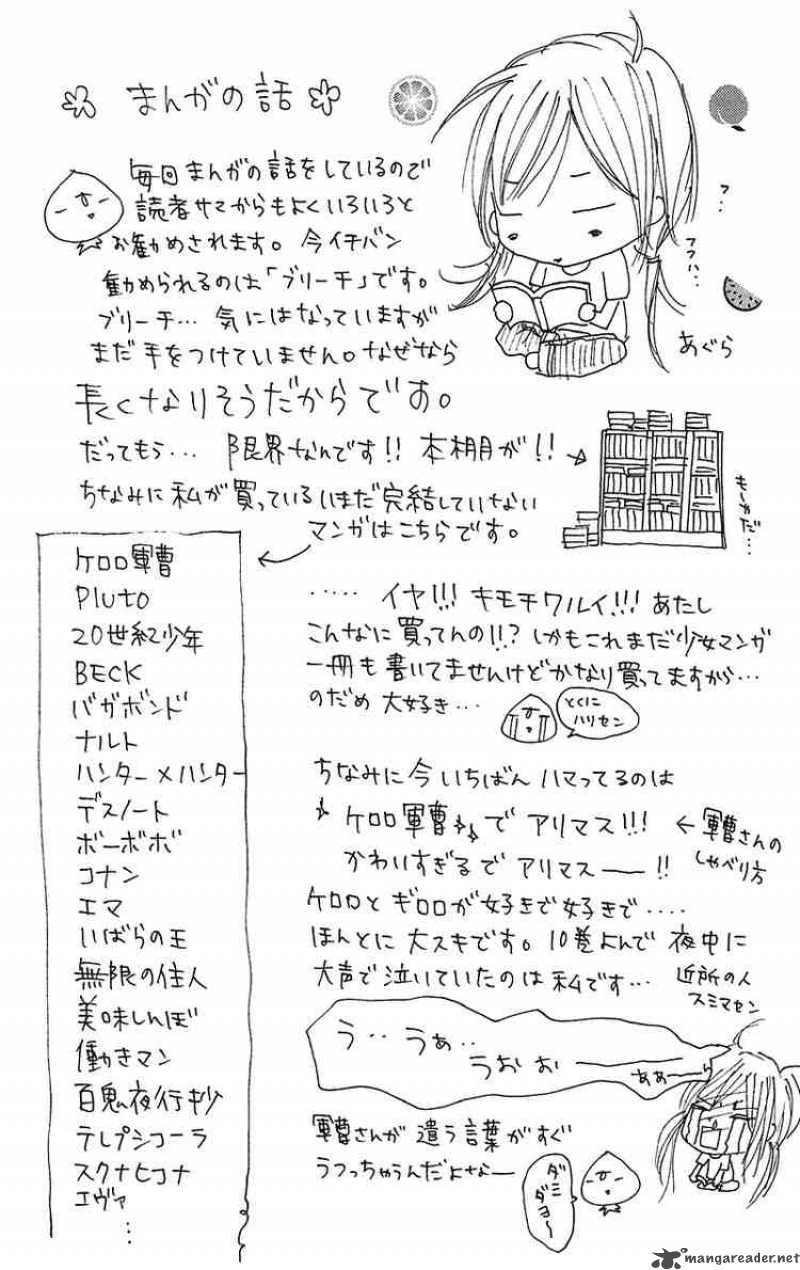 まんがの話
毎回まんがの話をしているので
読者サマからもよくいろいろと
お勧めされます。今イチバン
勧められるのは「ブリーチ」です。
ブリーチ… 気にはなっていますが
まだ手をつけていません。なぜなら
長くなりそうだからです。
だってもう… 限界なんです!! 本棚が!!
ちなみに私が買っているいまだ完結していない
マンガはこちらです。
フ…
フフハ…
あぐら
ケロロ軍曹
Pluto
20世紀少年
BECK
バガボンド
ナルト
ハンター×ハンター
デスノート
ボーボボ
コナン
エマ
いばらの王
無限の住人
美味しんぼ
働きマン
百鬼夜行抄
テレプシコーラ
スクナヒコナ
エヴァ
…
‥‥‥ イヤ!!! キモチワルイ!!! あたし
こんなに買ってんの!!? しかもこれまだ少女マンガ
一冊も書いてませんけどかなり買ってますから…
のだめ 大好き…
とくに
ハリセン
ちなみに今いちばんハマってるのは
ケロロ軍曹でアリマス!!!
← 軍曹さんの
しゃべり方
かわいすぎるでアリマスーー!!
ケロロとギロロが好きで好きで‥‥
ほんとに大スキです。10巻よんで夜中に
大声で泣いていたのは私です…
近所の人
スミマセン
う‥うぁ‥
うおお
ああーーっ
軍曹さんが遣う言葉がすぐ
うつっちゃうんだよなー
ダミ
ダヨ〜
mangareader.net